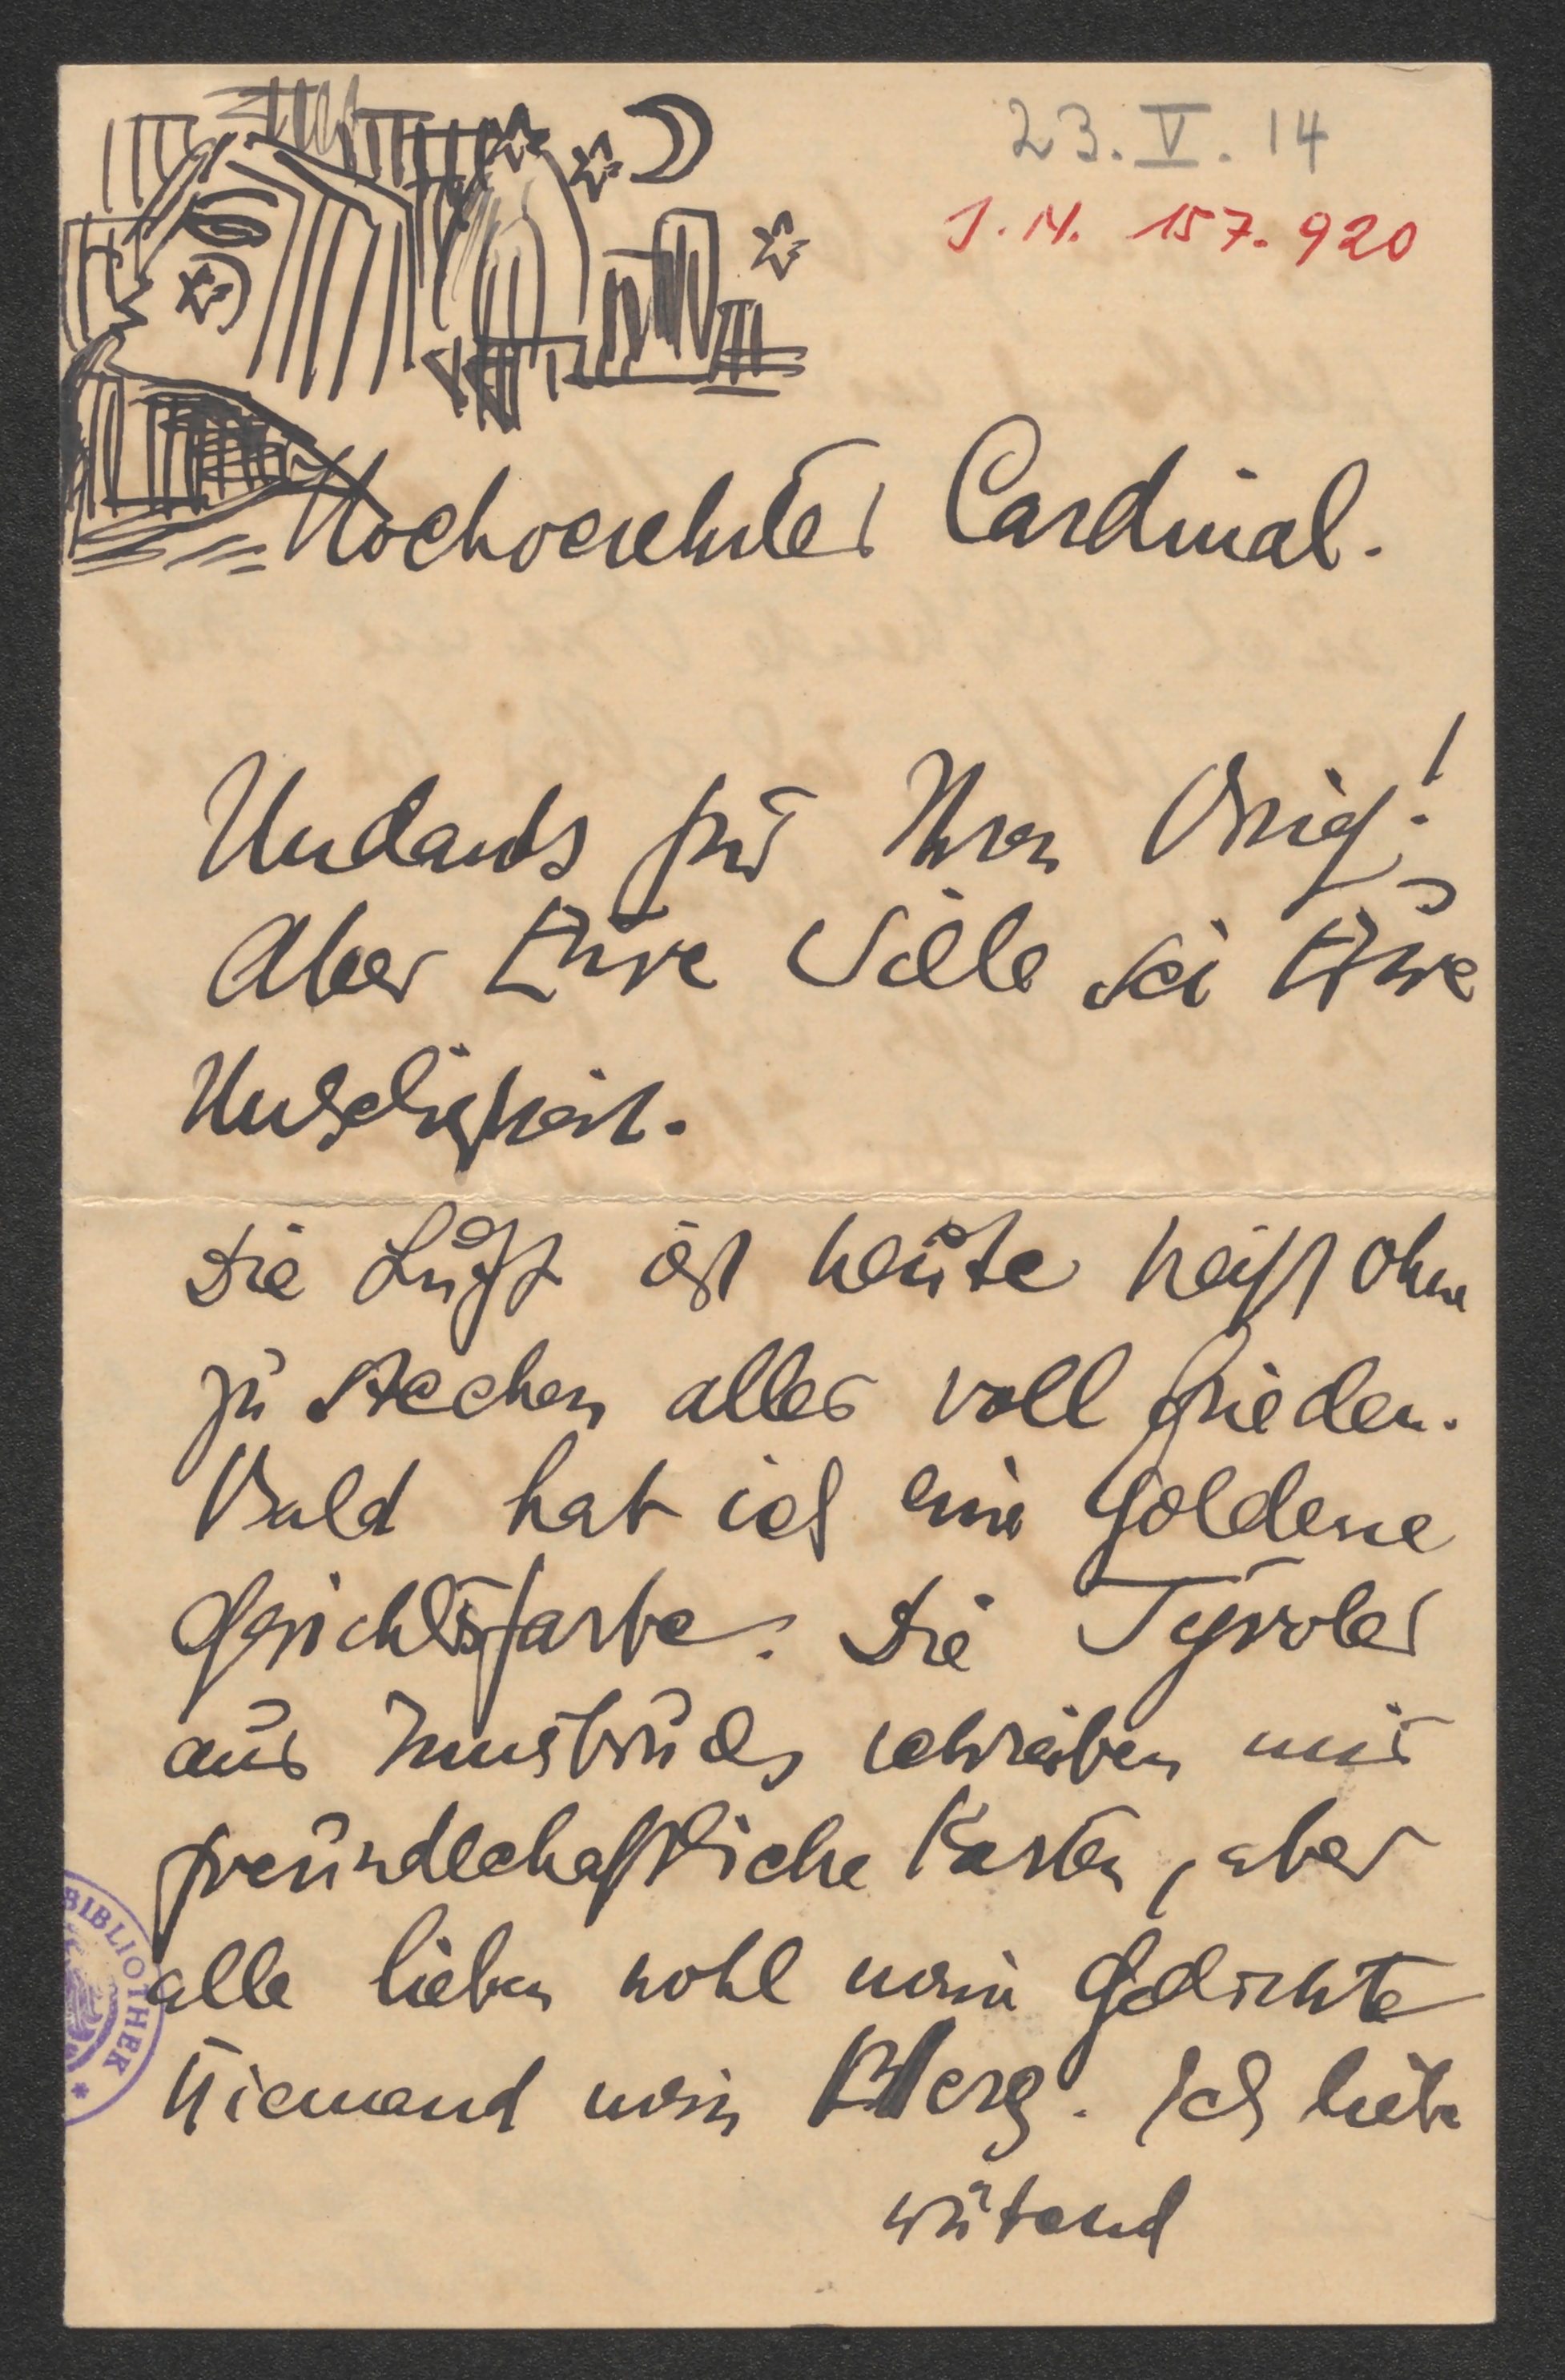 23. V. 14
J. N. 157.920
Hochverehrter Cardinal.
Undank für Ihren Brief!
Aber Eure Stille sei Eure
Unseligkeit.
Die Luft ist heute heiß ohne
zu stechen alles voll Frieden.
Bald hab ich eine goldene
Gesichtsfarbe. Die Tyroler
aus Innsbruck schreiben mir
freundschaftliche Karten, aber
alle lieben wohl mein Gedichte
Niemand mein Herz. Ich liebe
wütend
BIBLIOTHEK